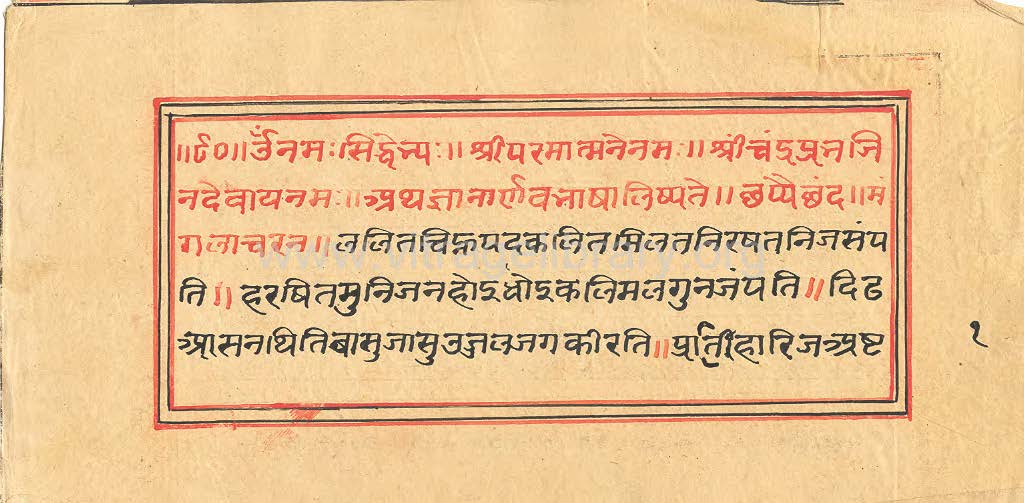 ॥८०॥ ॐ नमः सिद्धेभ्यः ॥ श्रीपरमात्मनेनमः ॥ श्रीचंद्रप्रभजि
नदेवायनमः ॥ अथज्ञानार्णवभाषालिष्यते ॥ छप्पैछंद ॥ मं
गलाचरन ॥ ललितचिह्नपदकलितमिलतनिरषतनिजसंप
ति ॥ हरषितमुनिजनहोइधोइकलिमलगुनजंपति ॥ दिढ
आसनथितिबासुजासुउज्जलजगकीरति ॥ प्रातीहारिजअष्ट
१
www.vitragelibrary.org